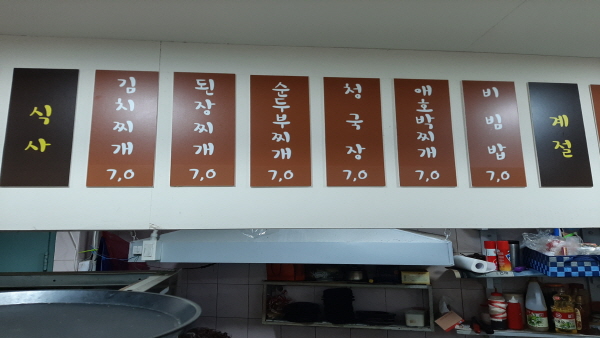 식사
김치찌개
7,0
된장찌개
7,0
순두부찌개
7,0
청국장
7,0
애호박찌개
7,0
비빔밥
7,0
계절